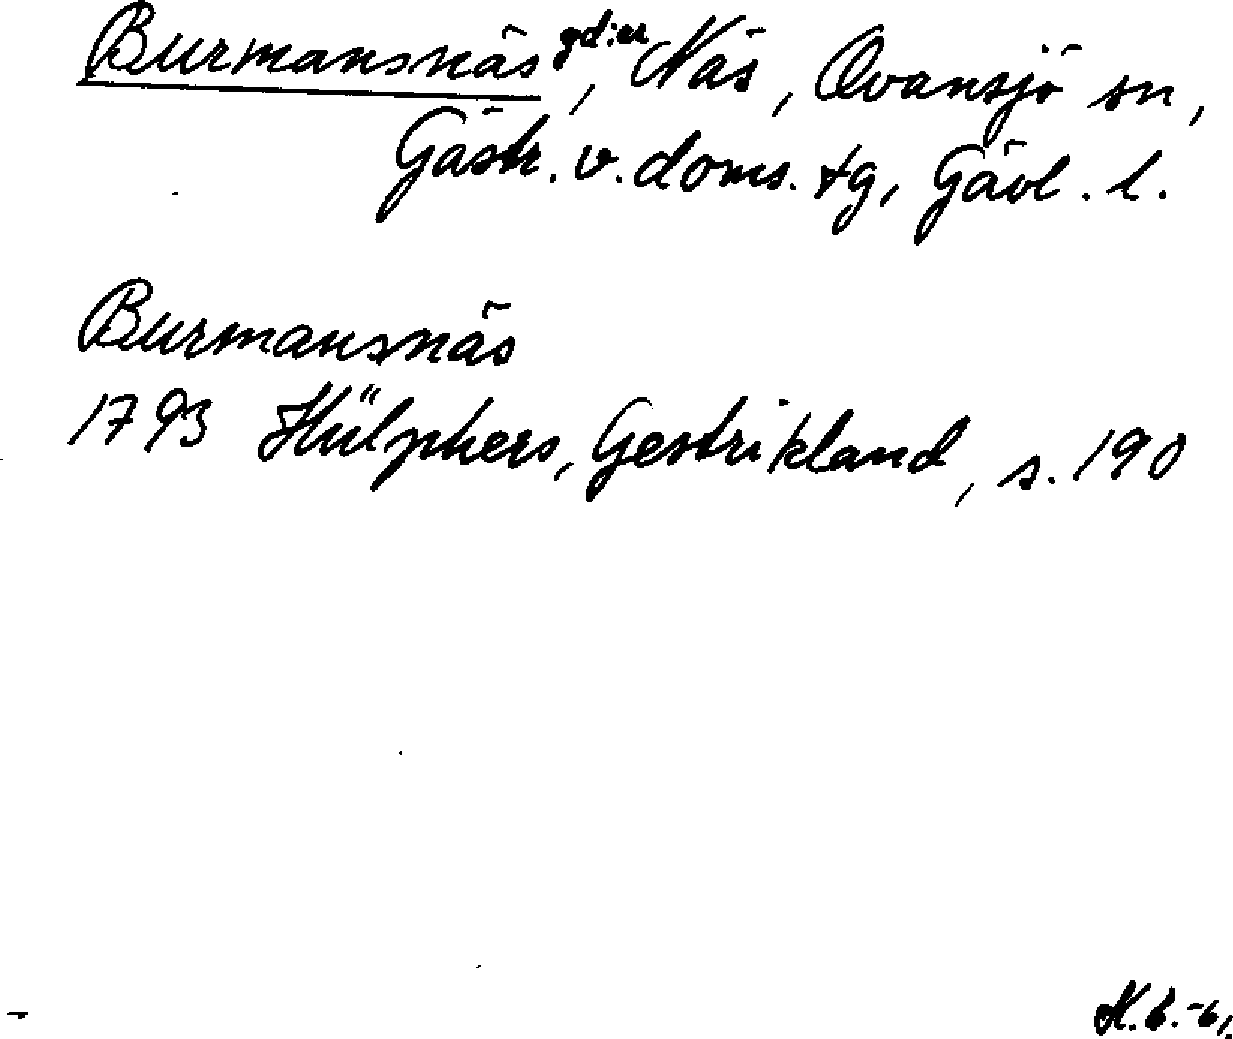 Burmansnäs gd:er, Näs, Ovansjö sn,
Gästr. v. doms. tg, Gävl. l.
Burmansnäs
1793 Hülphers, Gestrikland, s. 190